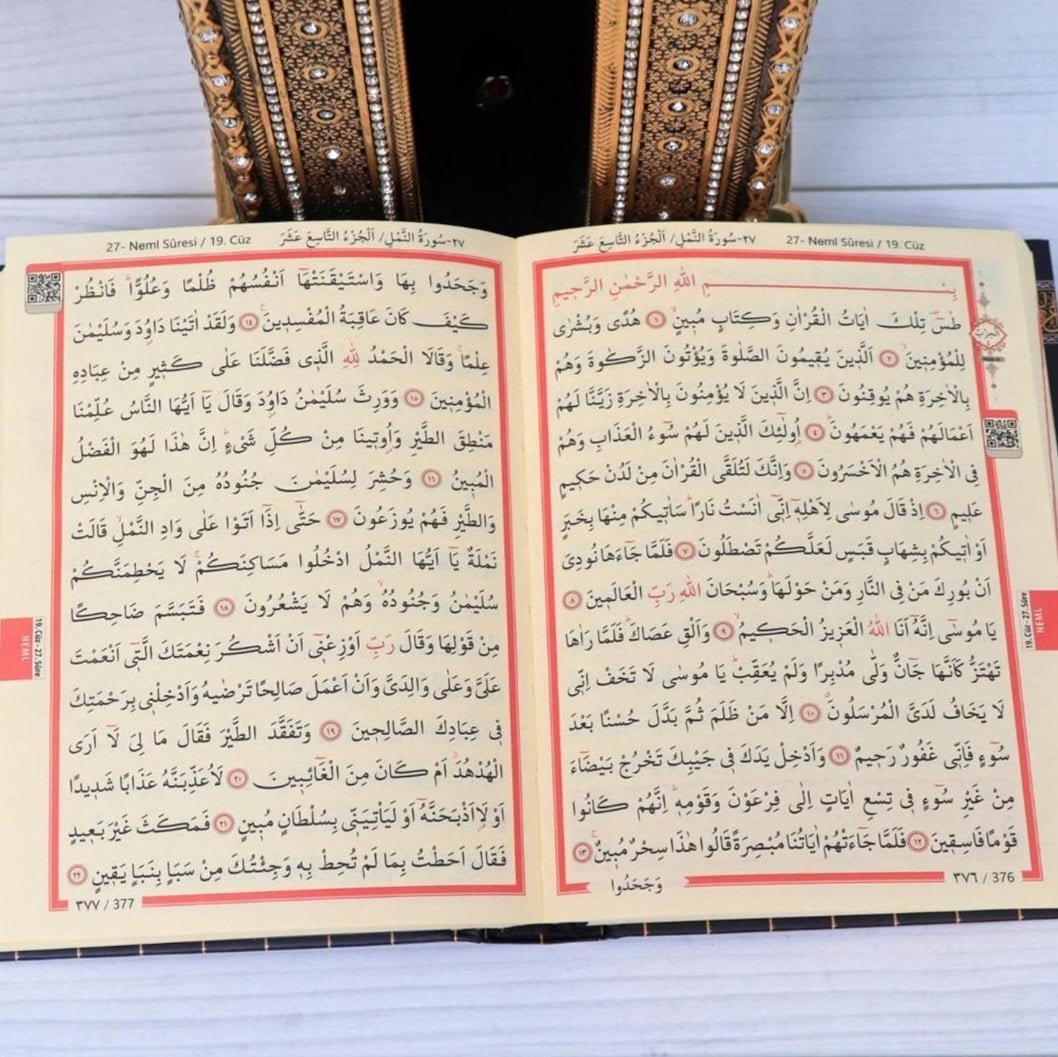 27- Neml Sûresi / 19. Cüz
٢٧-سُورَةُ النَّمْلِ/ اَلْجُزْءُ التَّاسِعَ عَشَرَ
بِسْــــمِ اللهِ الرَّحْمٰنِ الرَّحٖيمِ
طٰسٓ تِلْكَ اٰيَاتُ الْقُرْاٰنِ وَكِتَابٍ مُبٖينٍۙ ١ هُدًى وَبُشْرٰى
لِلْمُؤْمِنٖينَۙ ٢ اَلَّذٖينَ يُقٖيمُونَ الصَّلٰوةَ وَيُؤْتُونَ الزَّكٰوةَ وَهُمْ
بِالْاٰخِرَةِ هُمْ يُوقِنُونَ ٣ اِنَّ الَّذٖينَ لَا يُؤْمِنُونَ بِالْاٰخِرَةِ زَيَّنَّا لَهُمْ
اَعْمَالَهُمْ فَهُمْ يَعْمَهُونَۜ ٤ اُو۬لٰٓئِكَ الَّذٖينَ لَهُمْ سُٓوءُ الْعَذَابِ وَهُمْ
فِي الْاٰخِرَةِ هُمُ الْاَخْسَرُونَ ٥ وَاِنَّكَ لَتُلَقَّى الْقُرْاٰنَ مِنْ لَدُنْ حَكٖيمٍ
عَلٖيمٍ ٦ اِذْ قَالَ مُوسٰى لِاَهْلِهٖٓ اِنّٖٓي اٰنَسْتُ نَارًاۜ سَاٰتٖيكُمْ مِنْهَا بِخَبَرٍ
اَوْ اٰتٖيكُمْ بِشِهَابٍ قَبَسٍ لَعَلَّكُمْ تَصْطَلُونَ ٧ فَلَمَّا جَٓاءَهَا نُودِيَ
اَنْ بُورِكَ مَنْ فِي النَّارِ وَمَنْ حَوْلَهَاۜ وَسُبْحَانَ اللهِ رَبِّ الْعَالَمٖينَ ٨
يَا مُوسٰٓى اِنَّهُٓ اَنَا اللهُ الْعَزٖيزُ الْحَكٖيمُۙ ٩ وَاَلْقِ عَصَاكَۜ فَلَمَّا رَاٰهَا
تَهْتَزُّ كَاَنَّهَا جَٓانٌّ وَلّٰى مُدْبِرًا وَلَمْ يُعَقِّبْۜ يَا مُوسٰى لَا تَخَفْ اِنّٖي
لَا يَخَافُ لَدَيَّ الْمُرْسَلُونَۗ ١٠ اِلَّا مَنْ ظَلَمَ ثُمَّ بَدَّلَ حُسْنًا بَعْدَ
سُٓوءٍ فَاِنّٖي غَفُورٌ رَحٖيمٌ ١١ وَاَدْخِلْ يَدَكَ فٖي جَيْبِكَ تَخْرُجْ بَيْضَٓاءَ
مِنْ غَيْرِ سُٓوءٍ فٖي تِسْعِ اٰيَاتٍ اِلٰى فِرْعَوْنَ وَقَوْمِهٖۜ اِنَّهُمْ كَانُوا
قَوْمًا فَاسِقٖينَ ١٢ فَلَمَّا جَٓاءَتْهُمْ اٰيَاتُنَا مُبْصِرَةً قَالُوا هٰذَا سِحْرٌ مُبٖينٌۚ ١٣
وَجَحَدُوا
٣٧٦ / 376
19. Cüz - 27. Sûre
NEML
٢٧-سُورَةُ النَّمْلِ/ اَلْجُزْءُ التَّاسِعَ عَشَرَ
27- Neml Sûresi / 19. Cüz
وَجَحَدُوا بِهَا وَاسْتَيْقَنَتْهَٓا اَنْفُسُهُمْ ظُلْمًا وَعُلُوًّاۜ فَانْظُرْ
كَيْفَ كَانَ عَاقِبَةُ الْمُفْسِدٖينَ۟ ١٤ وَلَقَدْ اٰتَيْنَا دَاوُ۫دَ وَسُلَيْمٰنَ
عِلْمًاۚ وَقَالَا الْحَمْدُ لِلّٰهِ الَّذٖي فَضَّلَنَا عَلٰى كَثٖيرٍ مِنْ عِبَادِهِ
الْمُؤْمِنٖينَ ١٥ وَوَرِثَ سُلَيْمٰنُ دَاوُ۫دَ وَقَالَ يَٓا اَيُّهَا النَّاسُ عُلِّمْنَا
مَنْطِقَ الطَّيْرِ وَاُو۫تٖينَا مِنْ كُلِّ شَيْءٍۜ اِنَّ هٰذَا لَهُوَ الْفَضْلُ
الْمُبٖينُ ١٦ وَحُشِرَ لِسُلَيْمٰنَ جُنُودُهُ مِنَ الْجِنِّ وَالْاِنْسِ
وَالطَّيْرِ فَهُمْ يُوزَعُونَ ١٧ حَتّٰٓى اِذَٓا اَتَوْا عَلٰى وَادِ النَّمْلِۙ قَالَتْ
نَمْلَةٌ يَٓا اَيُّهَا النَّمْلُ ادْخُلُوا مَسَاكِنَكُمْۚ لَا يَحْطِمَنَّكُمْ
سُلَيْمٰنُ وَجُنُودُهُۙ وَهُمْ لَا يَشْعُرُونَ ١٨ فَتَبَسَّمَ ضَاحِكًا
مِنْ قَوْلِهَا وَقَالَ رَبِّ اَوْزِعْنٖٓي اَنْ اَشْكُرَ نِعْمَتَكَ الَّتٖٓي اَنْعَمْتَ
عَلَيَّ وَعَلٰى وَالِدَيَّ وَاَنْ اَعْمَلَ صَالِحًا تَرْضٰيهُ وَاَدْخِلْنٖي بِرَحْمَتِكَ
فٖي عِبَادِكَ الصَّالِحٖينَ ١٩ وَتَفَقَّدَ الطَّيْرَ فَقَالَ مَا لِيَ لَٓا اَرَى
الْهُدْهُدَۘ اَمْ كَانَ مِنَ الْغَٓائِبٖينَ ٢٠ لَاُعَذِّبَنَّهُ عَذَابًا شَدٖيدًا
اَوْ لَاَ۬اذْبَحَنَّهُٓ اَوْ لَيَأْتِيَنّٖي بِسُلْطَانٍ مُبٖينٍ ٢١ فَمَكَثَ غَيْرَ بَعٖيدٍ
فَقَالَ اَحَطْتُ بِمَا لَمْ تُحِطْ بِهٖ وَجِئْتُكَ مِنْ سَبَأٍ بِنَبَأٍ يَقٖينٍ ٢٢
٣٧٧ / 377
19. Cüz - 27. Sûre
NEML